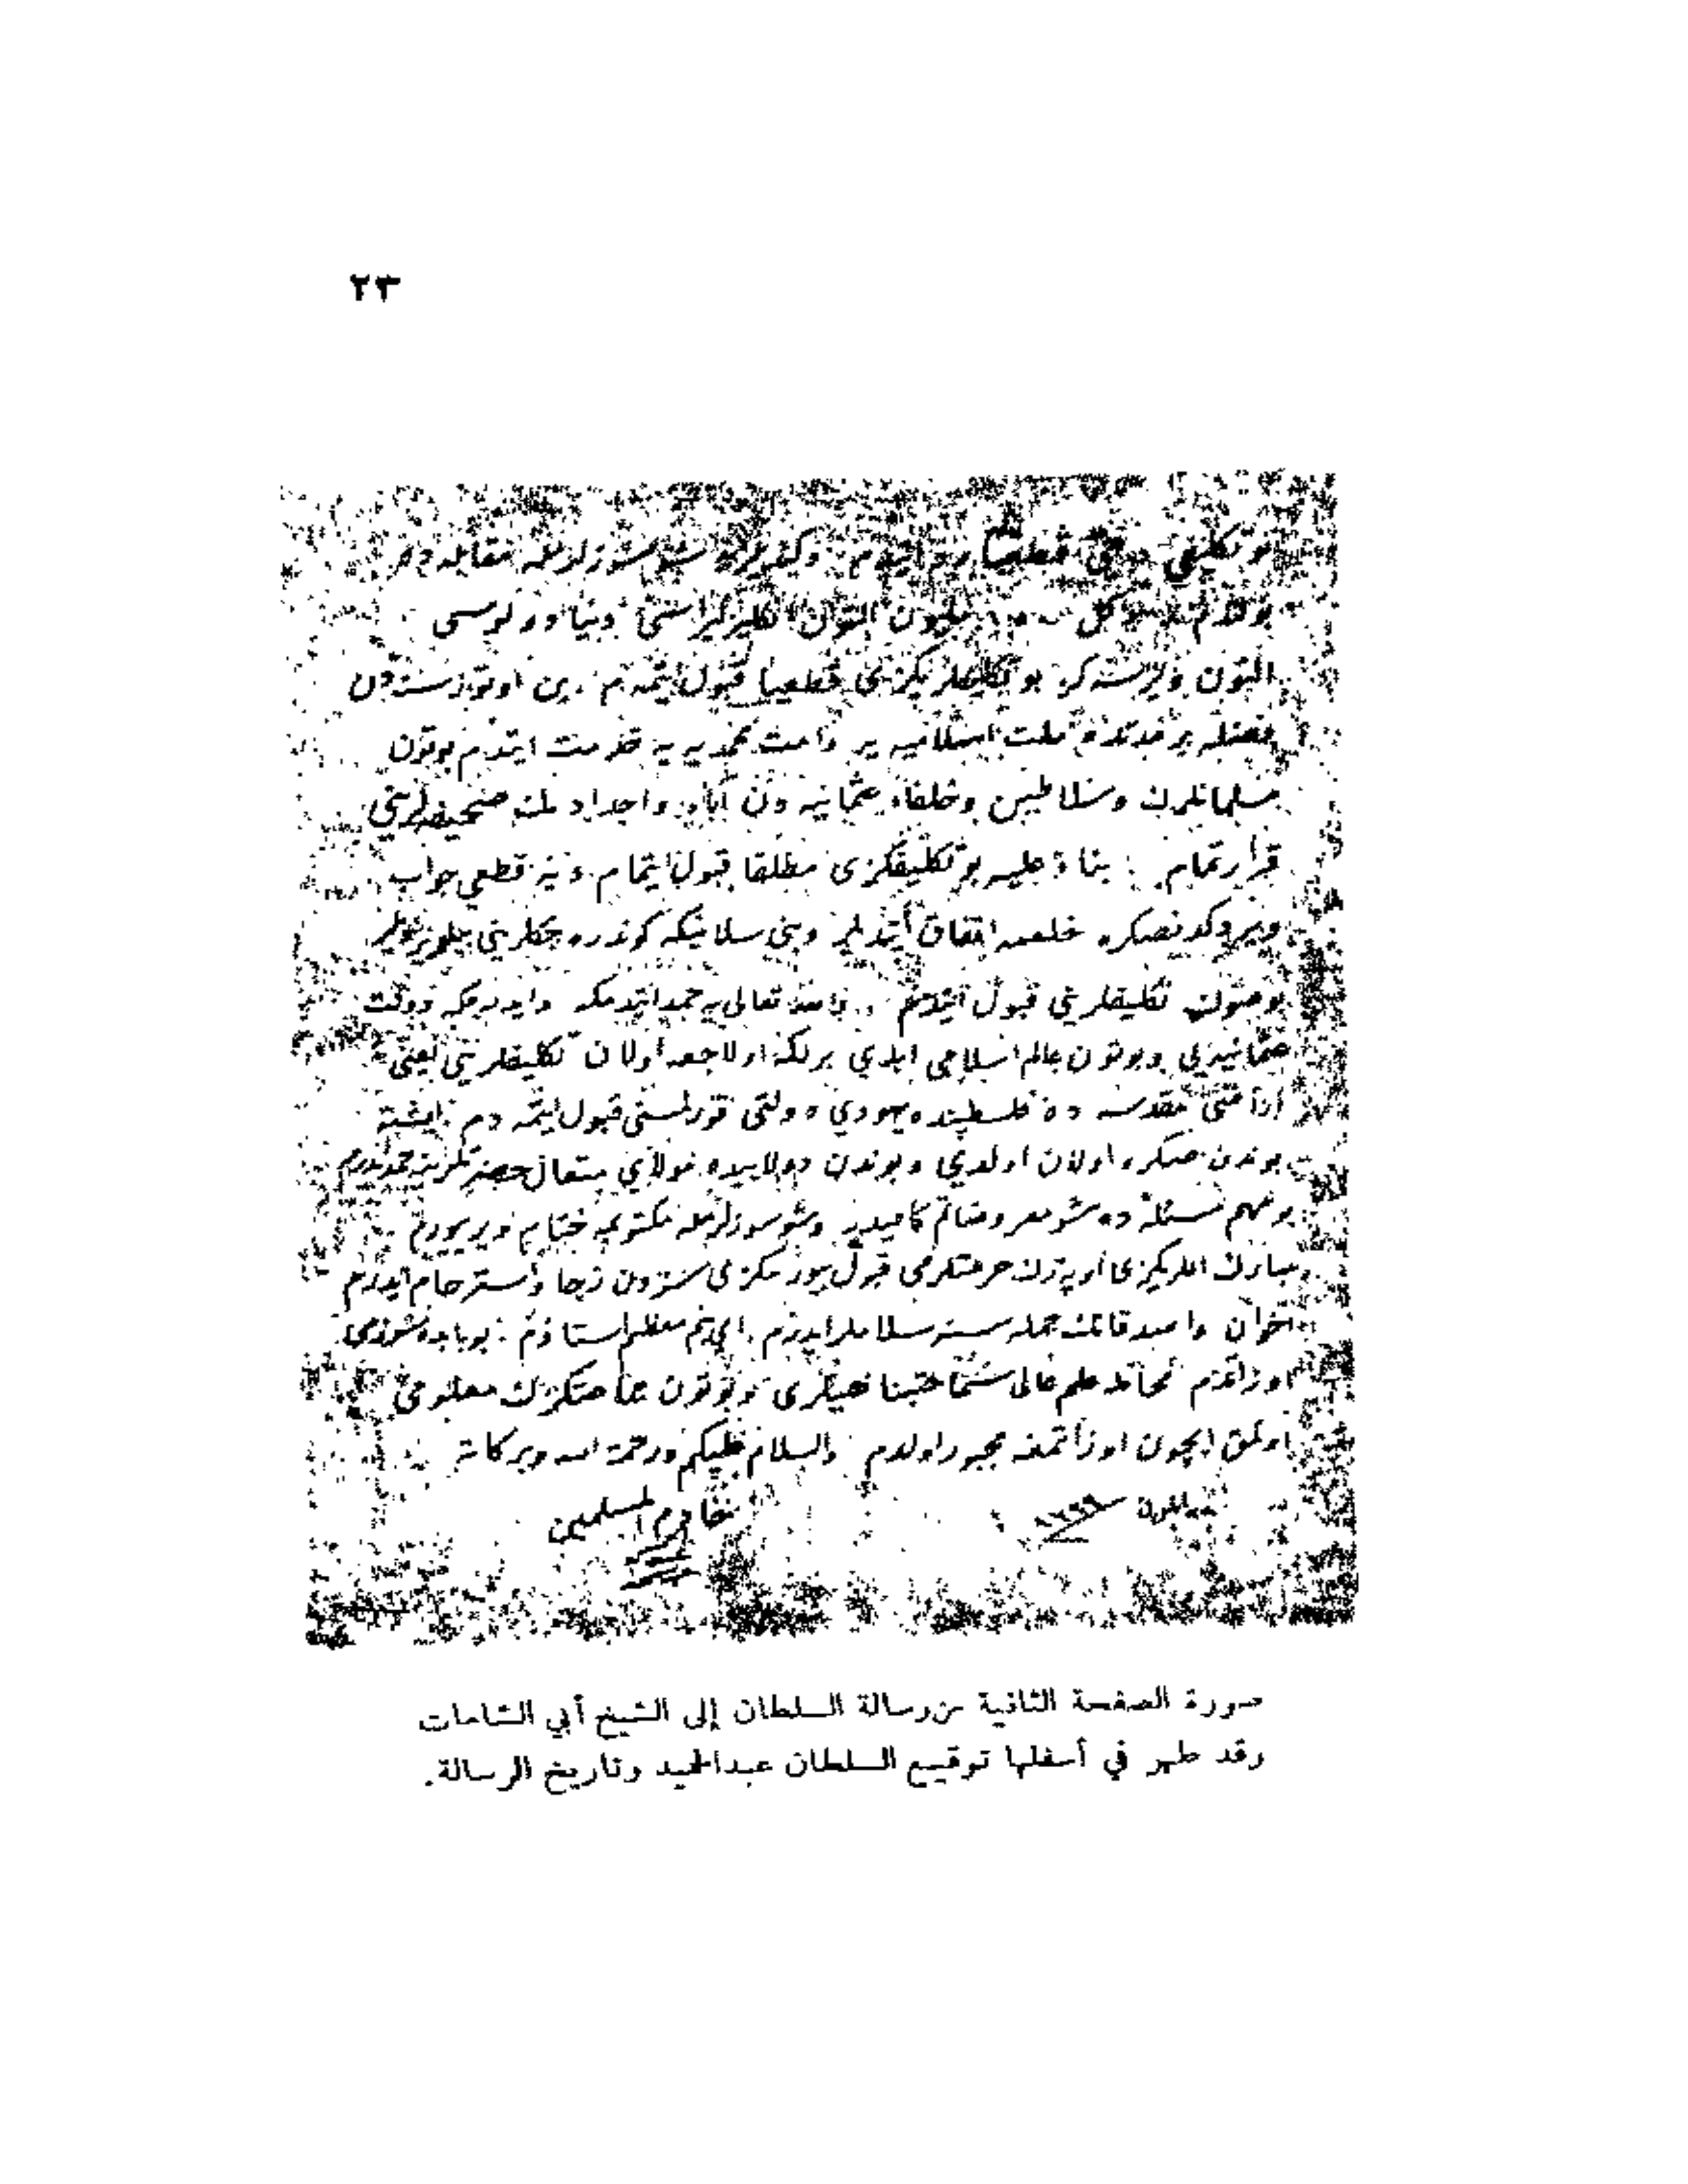 ٢٣
بو تكليفى دخى قطعيا رد ايتدم
بوتون التون انكليز ليراسى دنيا طولوسى
التون ويرسه كز بو تكليفكزى قطعيا قبول ايتمه م بن اوتوز سنه دن
فضله بر مدتده ملت اسلاميه يه وامت محمديه يه خدمت ايتدم بوتون
مسلمانلرك وسلاطين وخلفاء عثمانيه دن آباء واجدادمك صحيفه لرينى
قرارتمام بناءً عليه بو تكليفكزى مطلقا قبول ايتمام دييه قطعى جواب
ويردكدنصكره خلعمده اتفاق ايتديلر وبنى سلانيكه كوندره جكلرينى بيلديرديلر
بو صوك تكليفلرينى قبول ايتدم والله تعالى يه حمد ايتدمكه وايدرمكه دولت
عثمانيه يى وبوتون عالم اسلامى ابدى بر لكه اولاجق اولان تكليفلرينى يعنى
اراضئ مقدسه ده فلسطينده يهودى دولتى قورلمسنى قبول ايتمه دم ايشته
بوندن صكره اولان اولدى وبوندن دولاييده مولاى متعال حضرتلرينه حمد ايدرم
بو مهم مسئله ده شو معروضاتم كافيدر وشو سوزلرمله مكتوبمه ختام ويريورم
مبارك اللريكزى اوپه رك حرمتلرمى قبول بيورمكزى سزدن رجا واسترحام ايدرم
اخوان واصدقانك جمله سنه سلاملر ايدرم اى بنم معظم استاذم بو بابده سوزى
اوزاتدم محاط علم عالى سماحتپناهيلرى وبوتون جماعتكزك معلومى
اولمق ايچون اوزاتمغه مجبور اولدم والسلام عليكم ورحمة الله وبركاته
خادم المسلمين
صورة الصفحة الثانية من رسالة السلطان إلى الشيخ أبي الشامات
وقد ظهر في أسفلها توقيع السلطان عبدالحميد وتاريخ الرسالة.